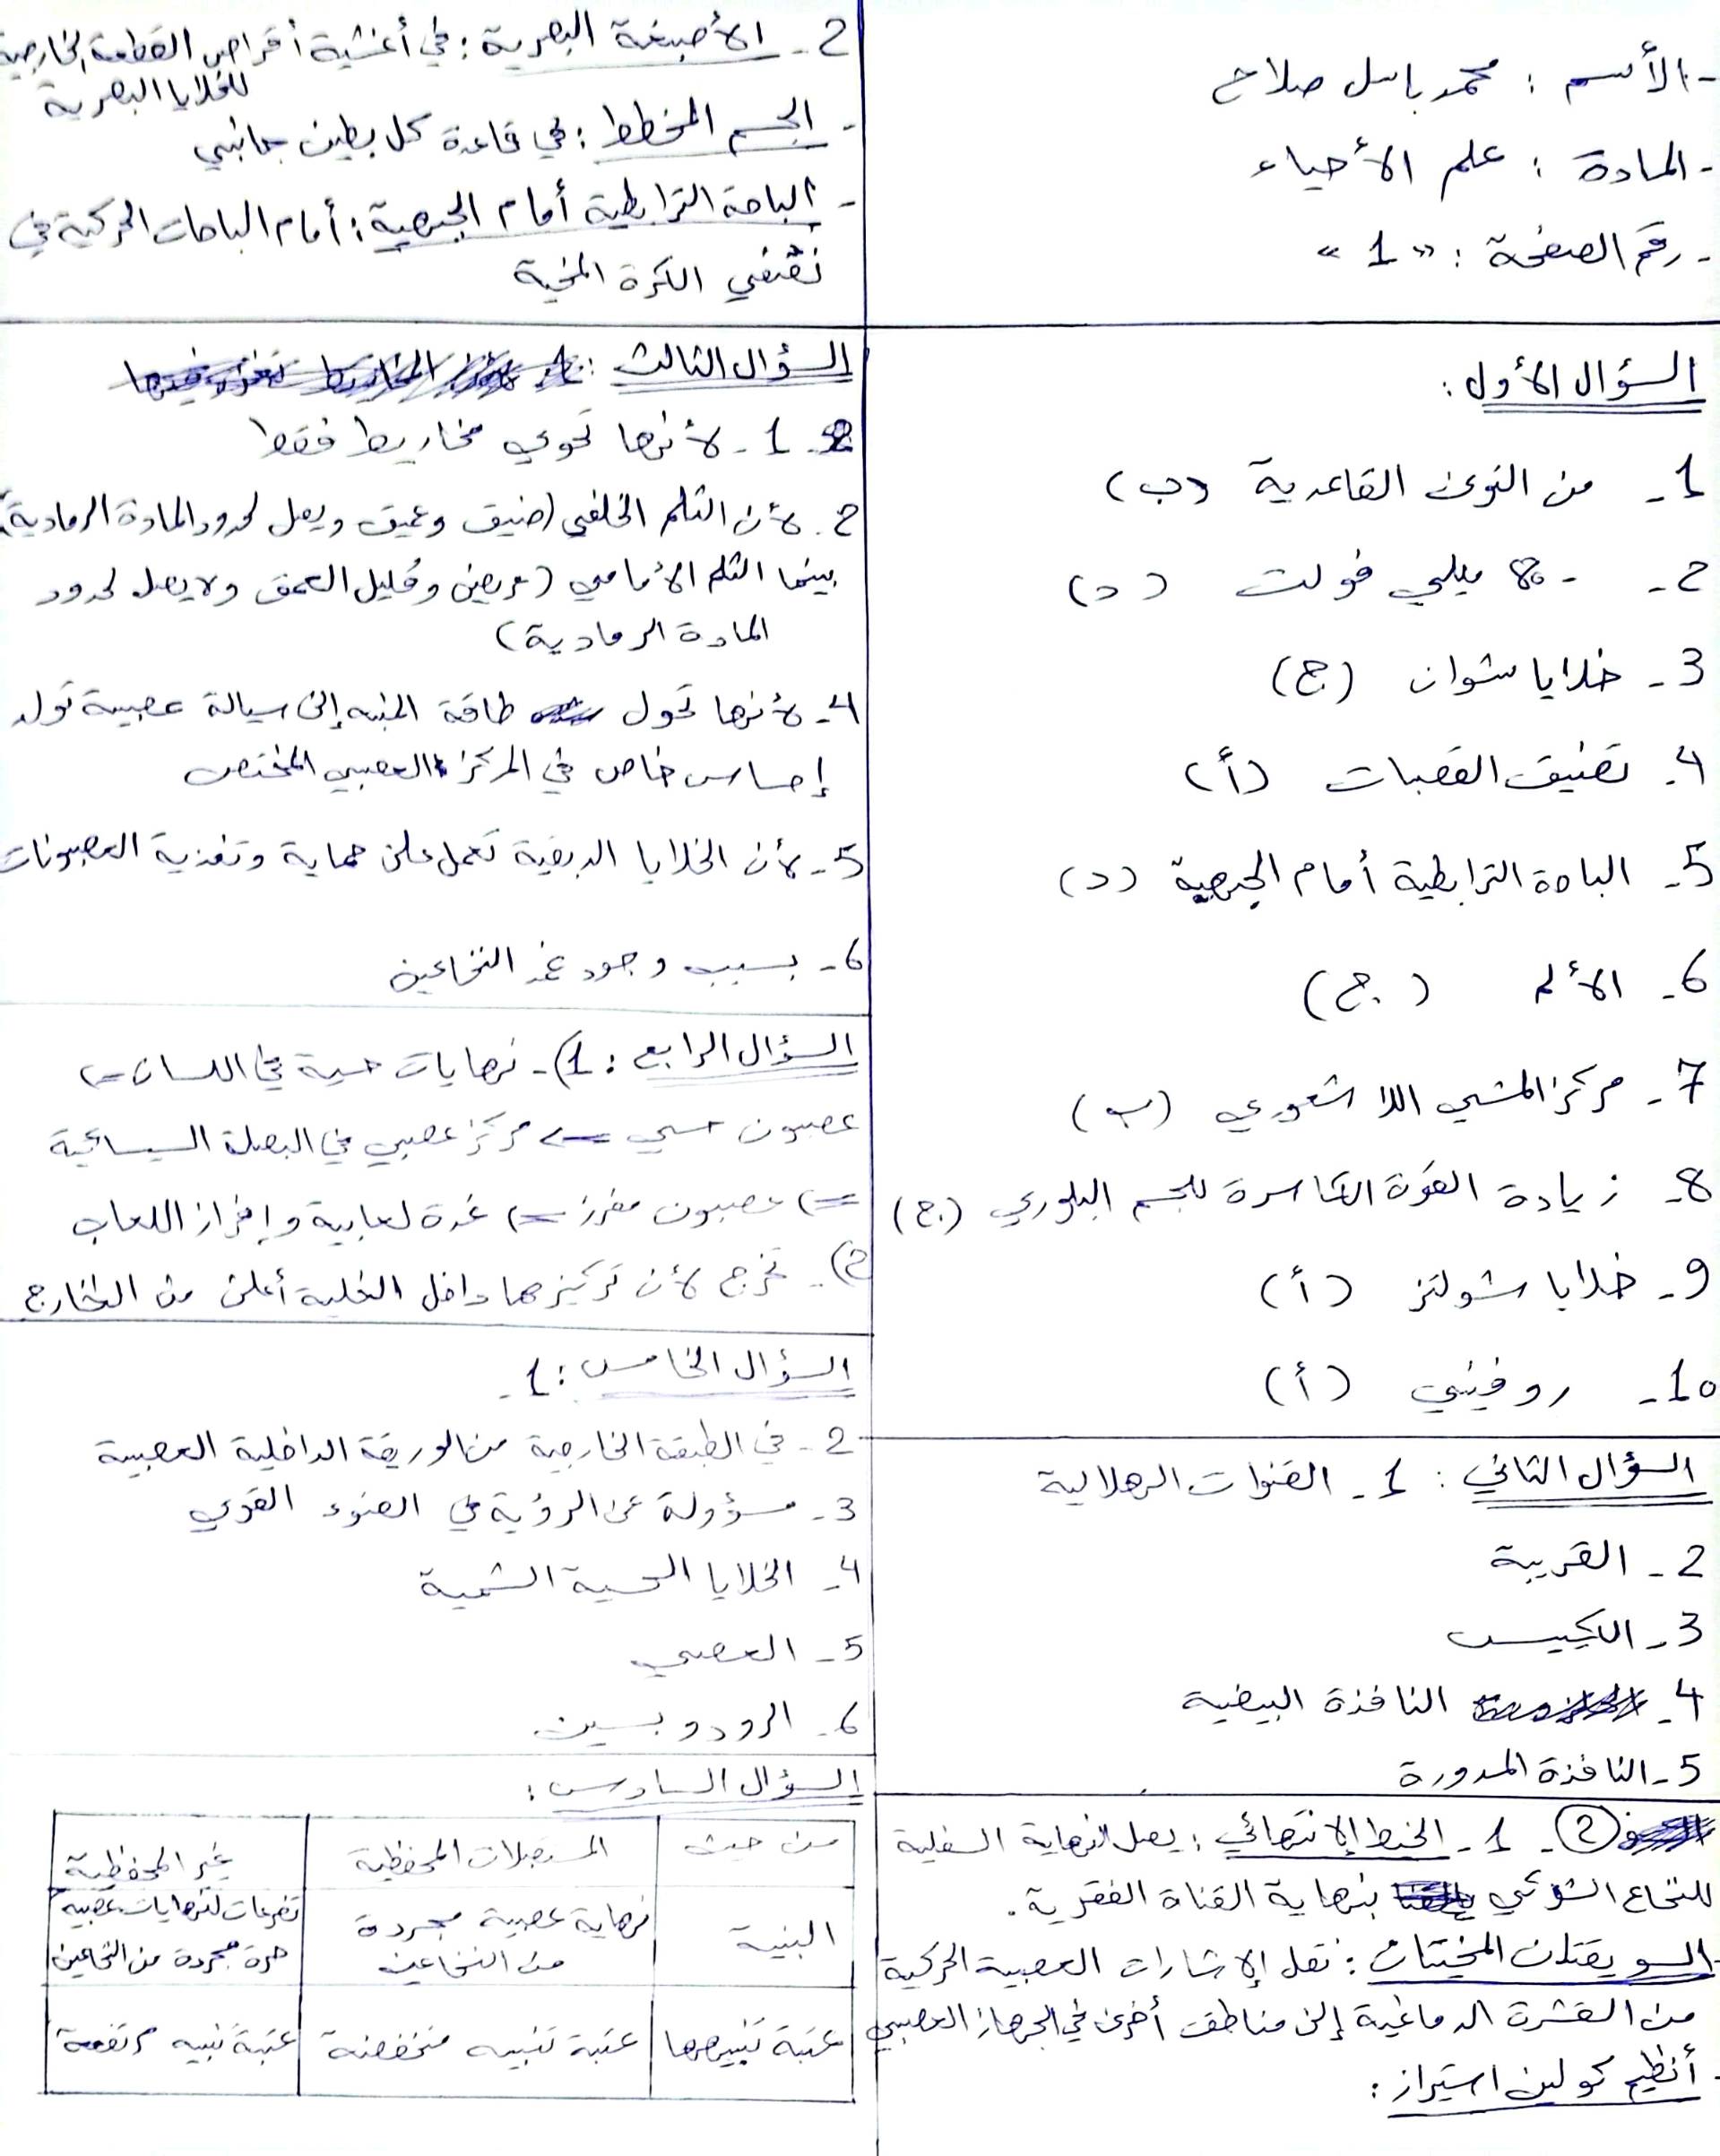 - الأسم : محمد باسل صلاح
- المادة : علم الأحياء
- رقم الصفحة : « 1 »
السؤال الأول :
1- من النوى القاعدية (ب)
2- - 80 ميلي فولت (د)
3- خلايا شوان (ج)
4- تضيق القصبات (أ)
5- الباحة الترابطية أمام الجبهية (د)
6- الألم (ج)
7- مركز المشي اللا شعوري (ب)
8- زيادة القوة الكاسرة للجسم البلوري (ج)
9- خلايا شولتز (أ)
10- روفيني (أ)
السؤال الثاني : 1- القنوات الهلالية
2- القريبة
3- الكييس
4- النافذة البيضية
5- النافذة المدورة
(2)- 1- الخيط الإنتهائي : يصل النهاية السفلية
للنخاع الشوكي بنهاية القناة الفقرية .
- السويقتان المخيتان : نقل الإشارات العصبية الحركية
من القشرة الدماغية إلى مناطق أخرى في الجهاز العصبي
- أنظيم كولين استيراز :
2- الأصبغة البصرية : في أغشية أقراص القطعة الخارجية
للخلايا البصرية
- الجسم المخطط : في قاعدة كل بطين جانبي
- الباحة الترابطية أمام الجبهية : أمام الباحات الحركية في
نصفي الكرة المخية
السؤال الثالث :
1- لأنها تحوي مخاريط فقط
2- لأن الثلم الخلفي (ضيق وعميق ويصل لحدود المادة الرمادية)
بينما الثلم الأمامي (عريض وقليل العمق ولا يصل لحدود
المادة الرمادية)
4- لأنها تحول طاقة المنبه إلى سيالة عصبية تولد
إحساس خاص في المركز العصبي المختص
5- لأن الخلايا الدبقية تعمل على حماية وتغذية العصبونات
6- بسبب وجود غمد النخاعين
السؤال الرابع : 1)- نهايات حسية في اللسان ←
عصبون حسي ← مركز عصبي في البصلة السيسائية
← عصبون مفرز ← غدة لعابية وإفراز اللعاب
2)- تخرج لأن تركيزها داخل الخلية أعلى من الخارج
السؤال الخامس : 1-
2- في الطبقة الخارجية من الوريقة الداخلية العصبية
3- مسؤولة عن الرؤية في الضوء القوي
4- الخلايا الحسية الشمية
5- العصبي
6- الرودوبسين
السؤال السادس :
من حيث المستقبلات المحفظية غير المحفظية
البنية نهاية عصبية مجردة تفرعات لنهايات عصبية
من النخاعين حرة مجردة من النخاعين
عتبة تنبيهها عتبة تنبيه منخفضة عتبة تنبيه مرتفعة